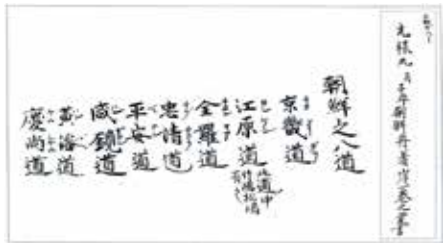 元禄九丙子年朝鮮舟着岸一巻之覚書
朝鮮之八道
京畿道
江原道 此道中ニ竹嶋松嶋有之
全羅道
忠清道
平安道
咸鏡道
黄海道
慶尚道